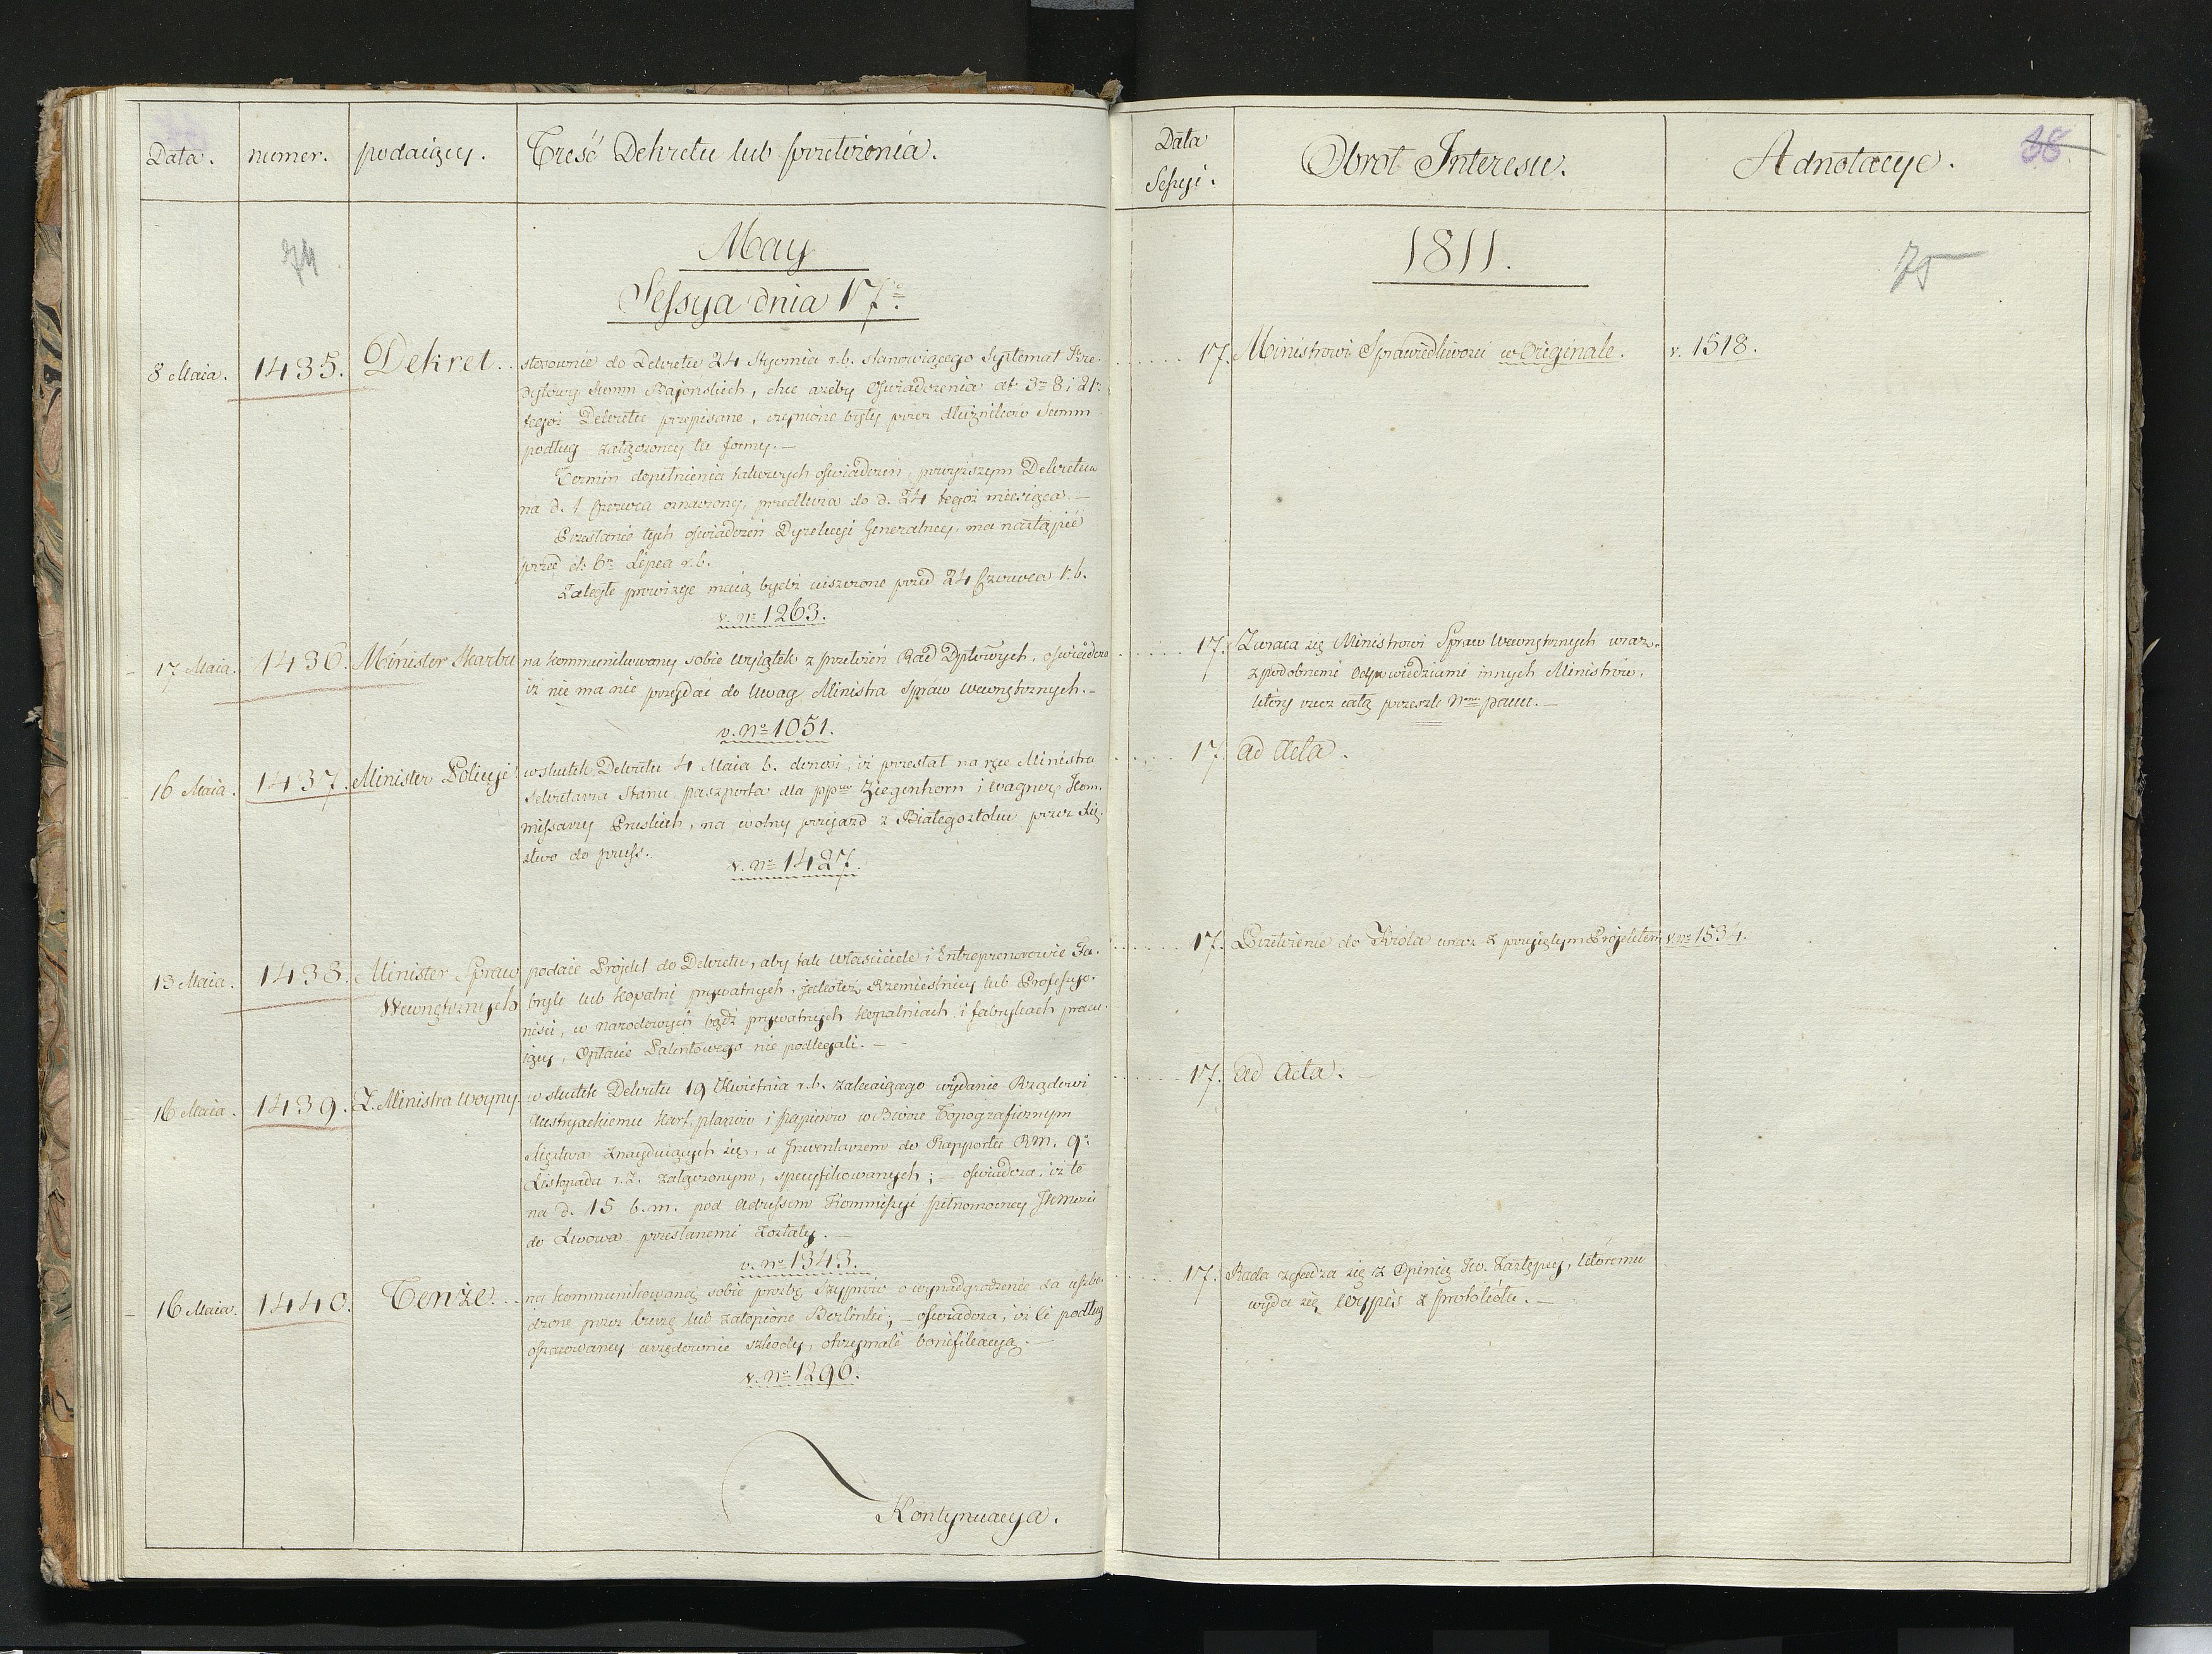 Data. numer. podaiący. Treść Dekretu lub przełożenia.
74
May
Sessya dnia 17º
8 Maia. 1435. Dekret. stosownie do Dekretu 24 Stycznia r.b. stanowiącego Systemat Kre-
dytowy Summ Bajońskich, chce ażeby Oświadczenia art 3º 8 i 21º
tegoż Dekretu przepisane, czynione były przez dłużników Summ
podług załączoney tu formy.—
Termin dopełnienia takowych oświadczeń, powyższym Dekretem
na d. 1 Czerwca oznaczony, przedłuża do d. 24 tegoż miesiąca.—
Przesłanie tych oświadczeń Dyrekcyi Generalney, ma nastąpić
przed d. 6º Lipca r.b.
Zaległe prowizye maią bydź uiszczone przed 24 Czerwca r.b.
v. Nº 1263.
17 Maia. 1436. Minister Skarbu na kommunikowany sobie wyiątek z przełożeń Rad Dptowych, oświadcza
iż nie ma nic przydać do Uwag Ministra Spraw Wewnętrznych.—
v. Nº 1051.
16 Maia. 1437. Minister Policyi wskutek Dekretu 4 Maia b. donosi, iż przesłał na ręce Ministra
Sekretarza Stanu paszporta dla pp Ziegenhorn i Wagner, Kom-
missarzy Pruskich, na wolny przejazd z Białegostoku przez Xię-
stwo do pruss.
v. Nº 1427.
13 Maia. 1438. Minister Spraw Wewnętrznych podaie Projekt do Dekretu, aby tak właściciele i Entreprenerowie Fa-
bryk lub Kopalni prywatnych, jakoteż Rzemieślnicy lub Professyo-
niści, w narodowych bądź prywatnych kopalniach i fabrykach pracu-
iący, Opłacie Patentowego nie podlegali.—
16 Maia. 1439. Z. Ministra Woyny. w skutek Dekretu 19 Kwietnia r.b. zalecaiącego wydanie Rządowi
Austryackiemu Kart, planów i papierów w Biorze Topograficznym
Xięstwa znayduiących się, a Inwentarzem do Rapportu RM. 9º
Listopada r.z. załączonym, specyfikowanych;— oświadcza, iż te
na d. 15 b.m. pod adressem Kommissyi pełnomocney
do Lwowa przesłanemi zostały.—
v. Nº 1343.
16 Maia. 1440. Tenże. na kommunikowaną sobie prośbę Szyprów o wynadgrodzenie za uszko-
dzone przez burzę lub zatopione Berlinki;— oświadcza, iż Ci podług
oszacowaney urzędownie szkody, otrzymali bonifikacyą.—
v. Nº 1296.
Kontynuacya.
Data Sessyi. Obrot Interesu. Adnotacye. 38
1811.
75
17. Ministrowi Sprawiedliwości w Originale. v. 1518.
17. Zwraca się Ministrowi Spraw Wewnętrznych wraz
z podobnemi Odpowiedziami innych Ministrów,
który rzecz całą przeszle
17. ad Acta.
17. Przełożenie do Króla wraz z przyiętym Projektem v. Nº 1534.
17. ad Acta.—
17. Rada zgadza się z Opinią Zastępcy, któremu
wyda się Wypis z protokółu.—